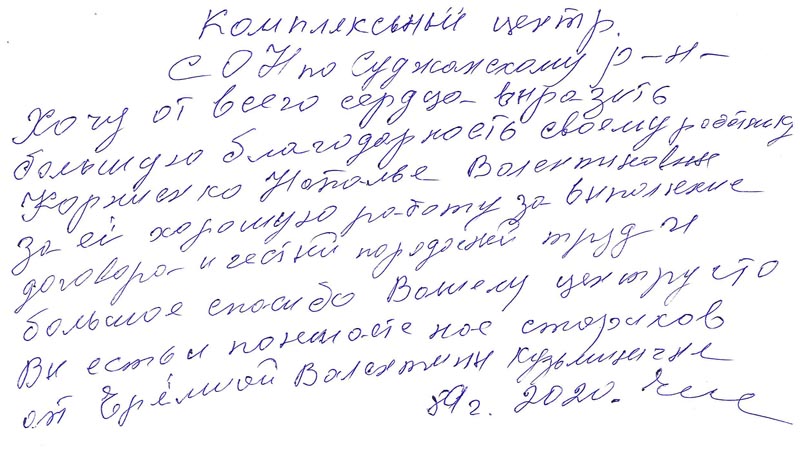 Комплексный центр.
СОН по Суджанскому р-н-
Хочу от всего сердца выразить
большую благодарность своему работнику
Корниенко Наталье Валентиновны
за её хорошую работу за выполнение
договора и честный порядочный труд и
большое спасибо Вашему центру что
Вы есть и понимаете нас стариков
от Ерёминой Валентины Кузьминичны
г. 2020.